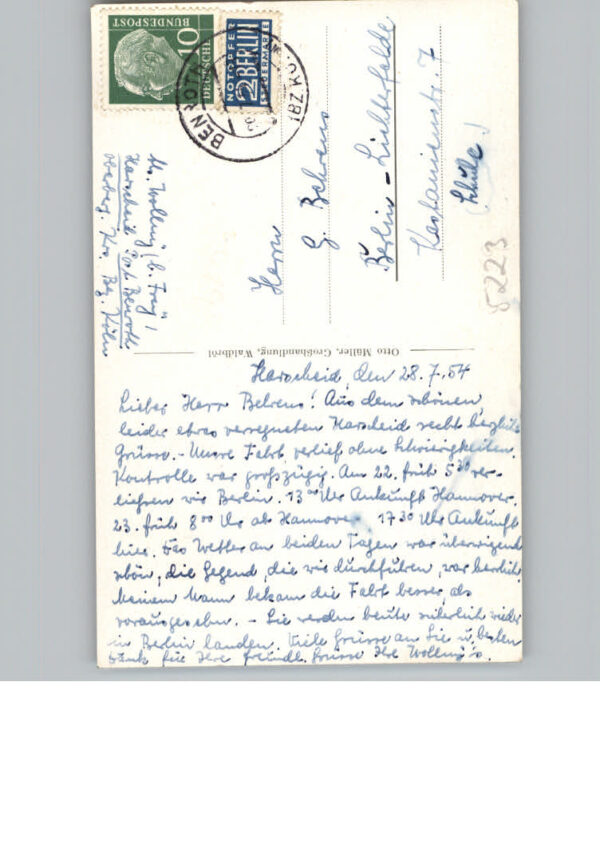 10
DEUTSCHE
BUNDESPOST
NOTOPFER
2 BERLIN
STEUERMARKE
BENROTH
Abs. Wollny, b. Frey,
Harscheid Post Benroth
Oberberg. Krs. Bez. Köln
Herrn
G. Behrens
Berlin-Lichterfelde
Kastanienstr. 7
5223
Otto Müller, Großhandlung, Waldbröl
Harscheid, den 28.7.54
Lieber Herr Behrens! Aus dem schönen,
leider etwas verregneten Harscheid recht herzliche
Grüsse. – Unsre Fahrt verlief ohne Schwierigkeiten.
Kontrolle war großzügig. Am 22. früh 5³⁰ ver-
liessen wir Berlin. 13⁰⁰ Uhr Ankunft Hannover.
23. früh 8⁰⁰ Uhr ab Hannover 17³⁰ Uhr Ankunft
hier. Das Wetter an beiden Tagen war überwiegend
schön, die Gegend, die wir durchfuhren, war herrlich
Meinem Mann bekam die Fahrt besser, als
vorausgesehen. – Sie werden heute sicherlich wieder
in Berlin landen. Viele Grüsse an Sie u. besten
Dank für Ihre freundl. Grüsse Ihre Wollny's.